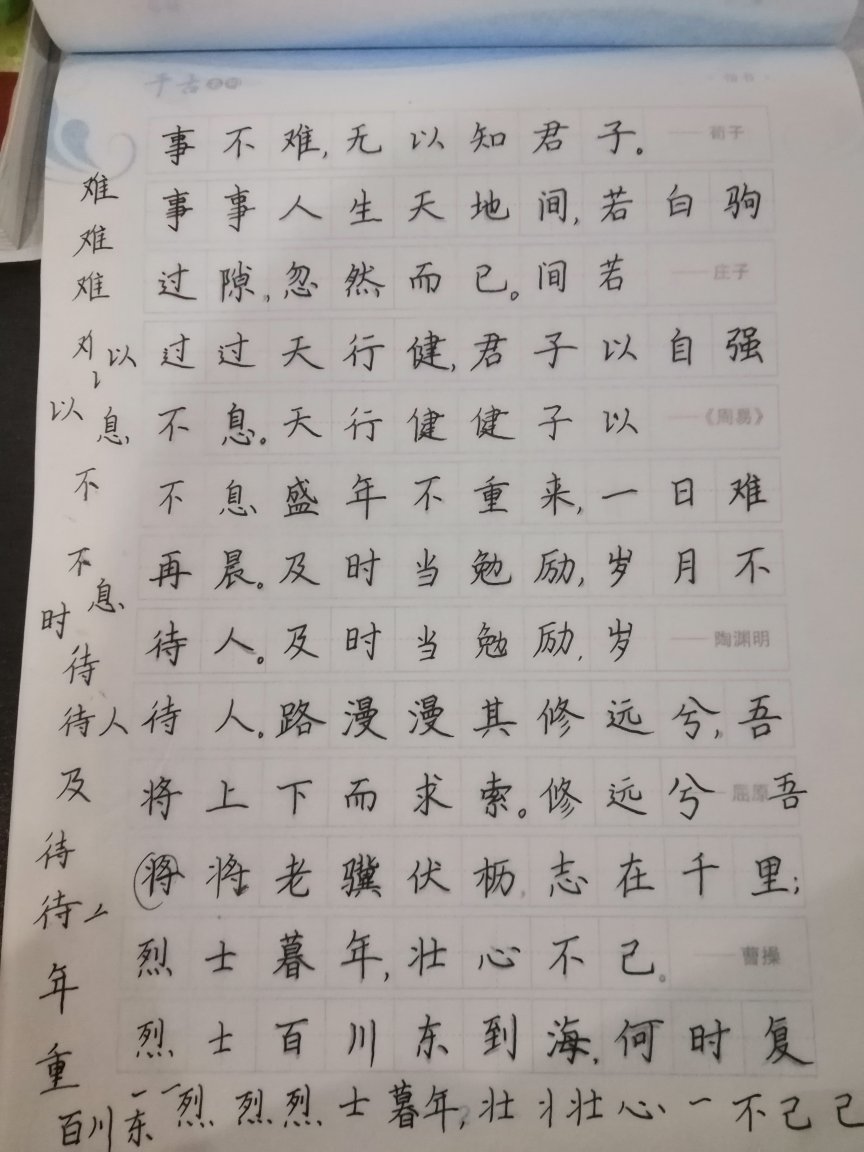 千古
楷书
事不难,无以知君子。 ——荀子
难 事事人生天地间,若白驹
难
难 过隙,忽然而已。间若 ——庄子
以 过过天行健,君子以自强
以 息 不息。天行健健子以 ——《周易》
不 不息盛年不重来,一日难
不 息 再晨。及时当勉励,岁月不
时 待 待人。及时当勉励,岁 ——陶渊明
待人 待人。路漫漫其修远兮,吾
及 将上下而求索。修远兮吾 屈原
待 将将老骥伏枥,志在千里;
待
年 烈士暮年,壮心不已。 ——曹操
重 烈士百川东到海,何时复
百川东一烈烈烈士暮年,壮丬壮心一不己己